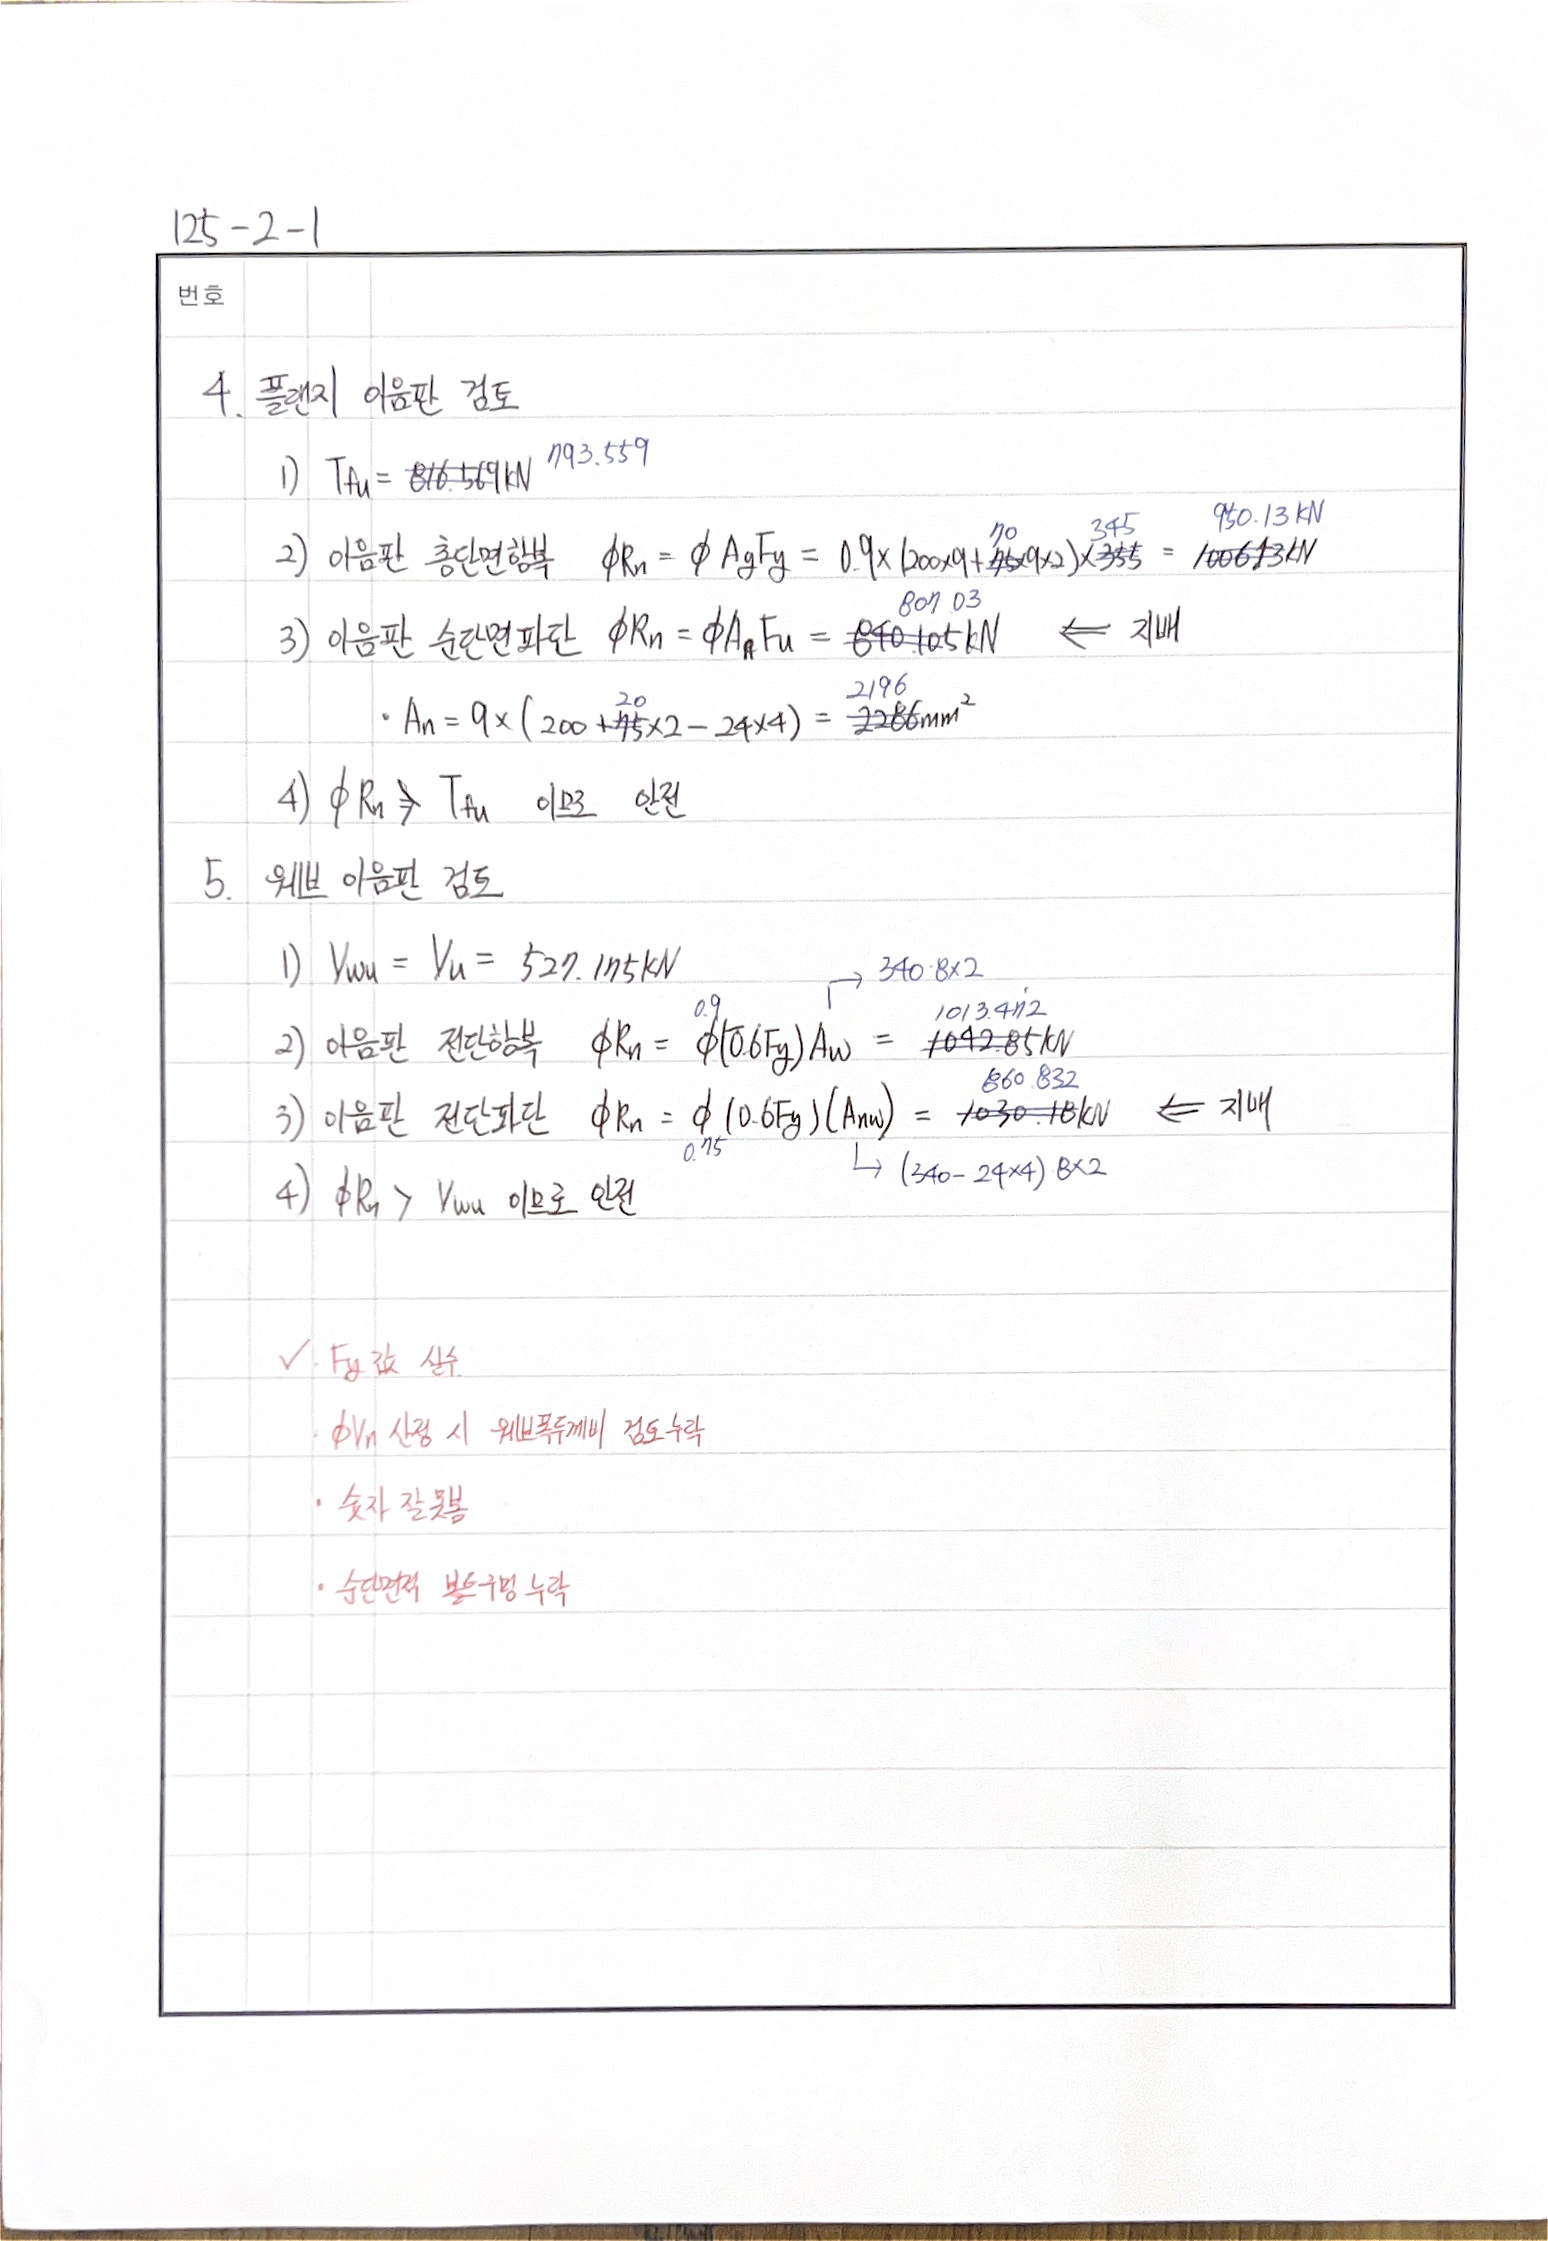 125-2-1
번호
4. 플랜지 이음판 검토
1) Tfu = 816.569kN 793.559
2) 이음판 총단면항복 φRn = φAgFy = 0.9×(200×9+75×9×2)×355 = 1006.43kN
70 345 950.13kN
3) 이음판 순단면파단 φRn = φAnFu = 840.105kN ⇐ 지배
807.03
· An = 9×(200+75×2-24×4) = 2286mm²
20 2196
4) φRn ≥ Tfu 이므로 안전
5. 웨브 이음판 검토
1) Vwu = Vu = 527.175kN
→ 340·8×2
2) 이음판 전단항복 φRn = φ(0.6Fy)Aw = 1042.85kN
0.9 1013.472
3) 이음판 전단파단 φRn = φ(0.6Fy)(Anw) = 1030.18kN ⇐ 지배
0.75 860.832
↳ (340-24×4) 8×2
4) φRn > Vwu 이므로 안전
✓· Fy값 실수
· φVn 산정 시 웨브폭두께비 검토누락
· 숫자 잘못봄
· 순단면적 볼트구멍 누락